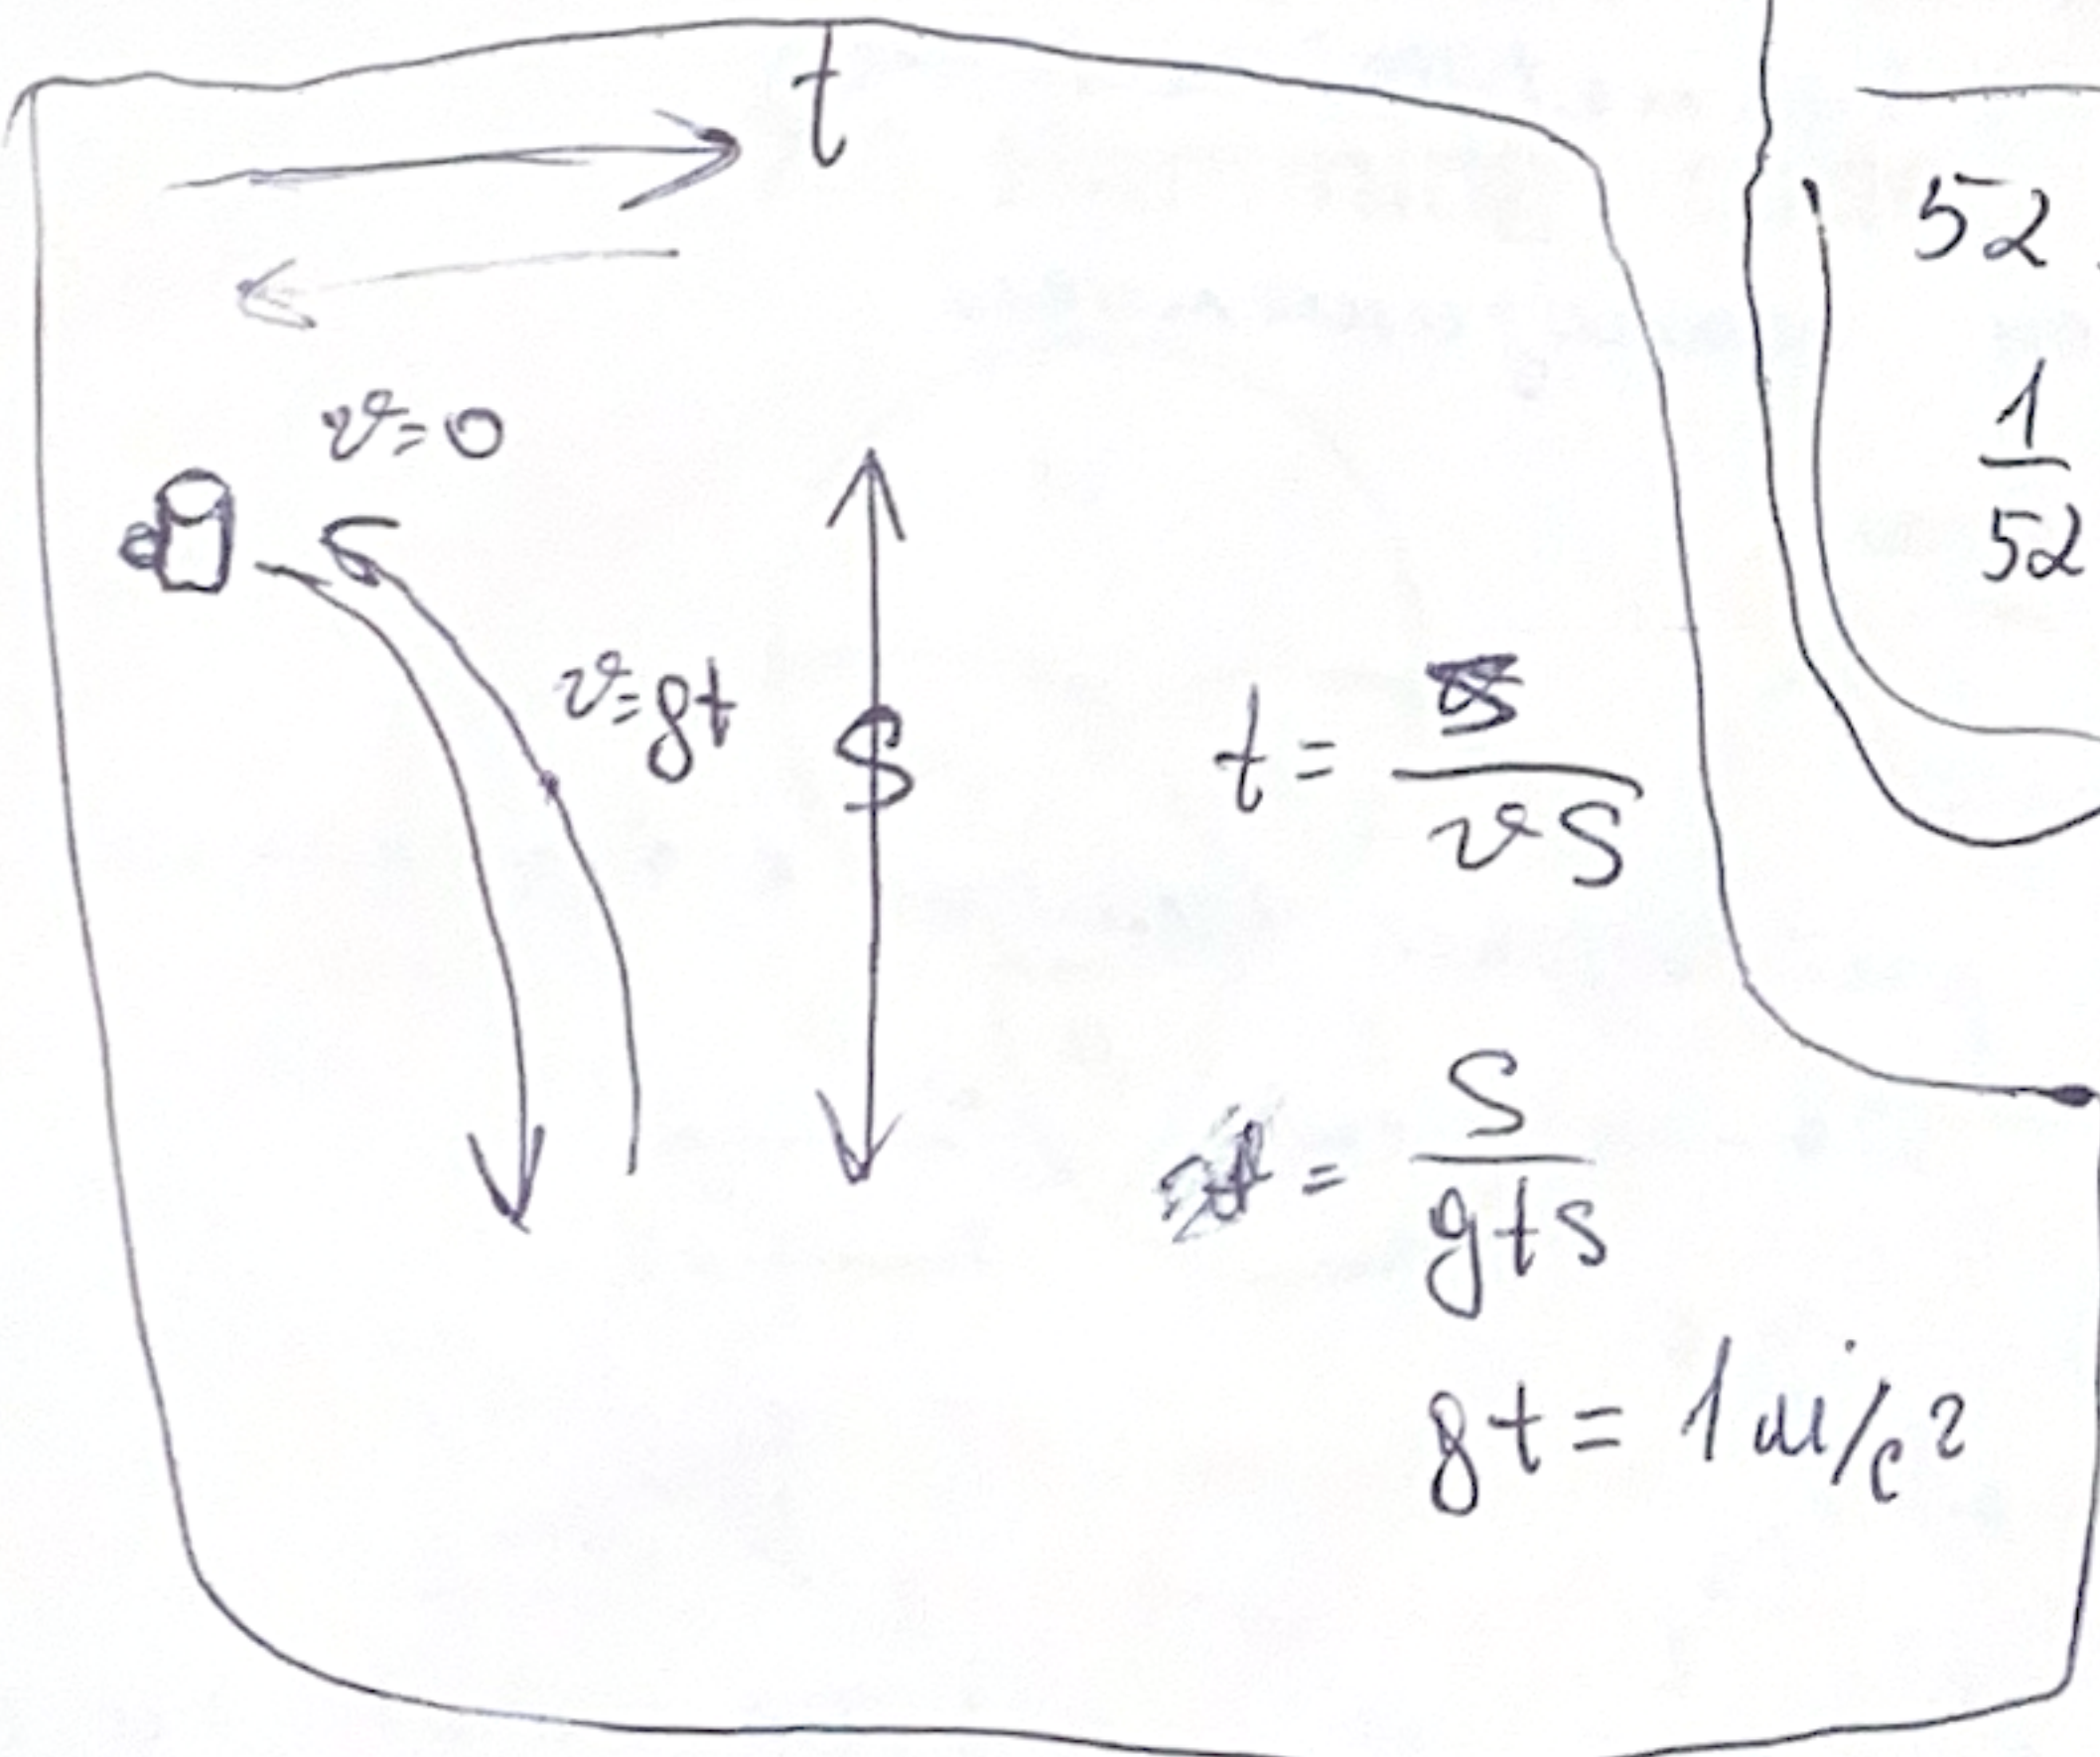 t
v=0
v=gt
S
t = —/vS
= S/gts
gt = 1 м/с²
52
1/52